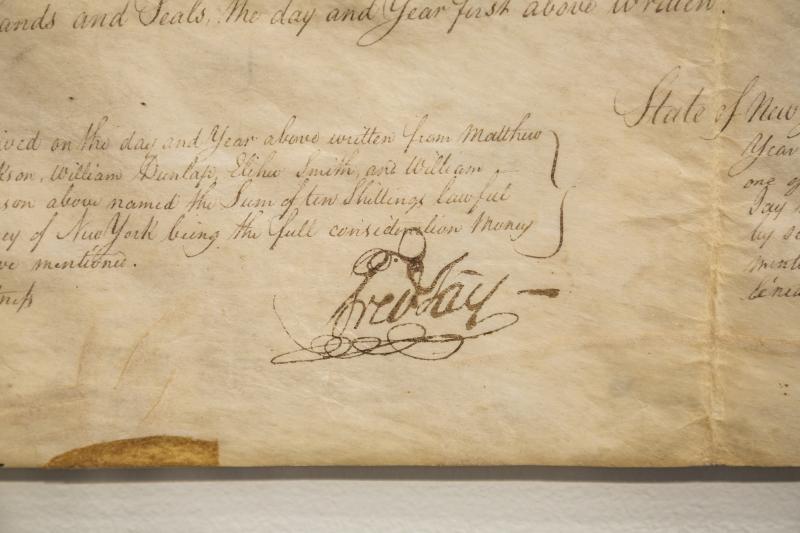 ands and Seals, the day and Year first above written.
ived on the day and Year above written from Matthew
kson, William Dunlap, Elihu Smith, and William
son above named the Sum of ten Shillings lawful
ey of New York being the full consideration Money
ve mentioned.
tness
Fred Jay
State of New
Year
one of
Jay
by